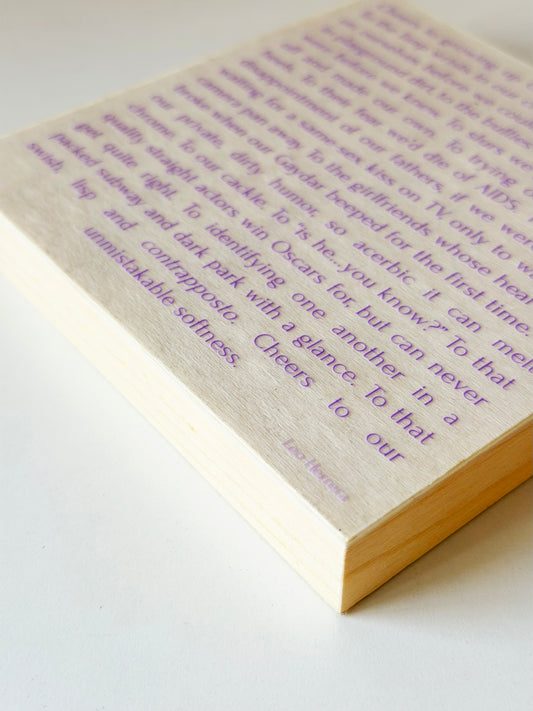 to playground dirt, to the bullies
before we knew. To stars we
and made our own. To trying
To their fear we'd die of AIDS,
disappointment of our fathers, if we were
waiting for a same-sex kiss on TV, only to
camera pan away. To the girlfriends whose
broke when our Gaydar beeped for the first time.
our private, dirty humor, so acerbic it can
dreams. To our cackle. To "is he...you know?" To that
quality straight actors win Oscars for, but can never
get quite right. To identifying one another in a
packed subway and dark park with a glance. To that
swish, lisp and contrapposto. Cheers to our
unmistakable softness.
Leo Herrera